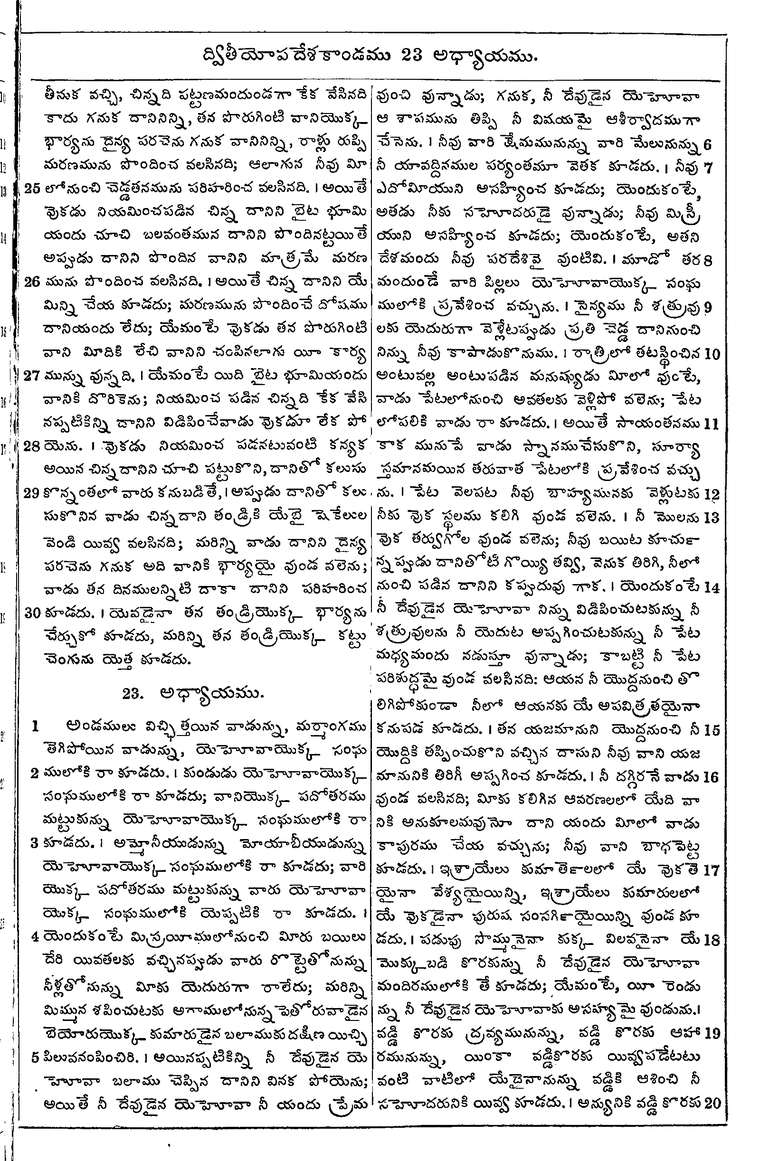 ద్వితీయోపదేశకాండము 23 అధ్యాయము.
తీసుక వచ్చి, చిన్నది పట్టణమందుండగా కేక వేసినది
కాదు గనుక దానినిన్ని, తన పొరుగింటి వానియొక్క
భార్యను దైన్య పరచెను గనుక వానినిన్ని, రాళ్లు రువ్వి
మరణమును పొందించ వలసినది; ఆలాగున నీవు మీ
25 లోనుంచి చెడ్డతనమును పరిహరించ వలసినది. । అయితే
వొకడు నియమించపడిన చిన్న దానిని బైట భూమి
యందు చూచి బలవంతమున దానిని పొందినట్టయితే
అప్పుడు దానిని పొందిన వానిని మాత్రమే మరణ
26 మును పొందించ వలసినది. । అయితే చిన్న దానిని యే
మిన్ని చేయ కూడదు; మరణమును పొందించే దోషము
దానియందు లేదు; యేమంటే వొకడు తన పొరుగింటి
వాని మీదికి లేచి వానిని చంపినలాగు యీ కార్య
27 మున్ను వున్నది. । యేమంటే యిది బైట భూమియందు
వానికి దొరికెను; నియమించ పడిన చిన్నది కేక వేసి
నప్పటికిన్ని దానిని విడిపించేవాడు వొకడూ లేక పో
28 యెను. । వొకడు నియమించ పడనటువంటి కన్యక
అయిన చిన్న దానిని చూచి పట్టుకొని, దానితో కలుసు
29 కొన్నంతలో వారు కనుబడితే, । అప్పుడు దానితో కలు
సుకొనిన వాడు చిన్నదాని తండ్రికి యేబై షెకేలుల
వెండి యివ్వ వలసినది; మరిన్ని వాడు దానిని దైన్య
పరచెను గనుక అది వానికి భార్యయై వుండ వలెను;
వాడు తన దినములన్నిటి దాకా దానిని పరిహరించ
30 కూడదు. । యెవడైనా తన తండ్రియొక్క భార్యను
చేర్చుకో కూడదు, మరిన్ని తన తండ్రియొక్క కట్టు
చెంగును యెత్త కూడదు.
23. అధ్యాయము.
1 అండములు విచ్ఛిత్తయిన వాడున్ను, మర్మాంగము
తెగిపోయిన వాడున్ను, యెహోవాయొక్క సంఘ
2 ములోకి రా కూడదు. । కుండుడు యెహోవాయొక్క
సంఘములోకి రా కూడదు; వానియొక్క పదోతరము
మట్టుకున్ను యెహోవాయొక్క సంఘములోకి రా
3 కూడదు. । అమ్మోనీయుడున్ను మోయాబీయుడున్ను
యెహోవాయొక్క సంఘములోకి రా కూడదు; వారి
యొక్క పదోతరము మట్టుకున్ను వారు యెహోవా
యొక్క సంఘములోకి యెప్పటికి రా కూడదు. ।
4 యెందుకంటే మిస్రయీములోనుంచి మీరు బయిలు
దేరి యివతలకు వచ్చినప్పుడు వారు రొట్టెతోనున్ను
నీళ్లతోనున్ను మీకు యెదురుగా రాలేదు; మరిన్ని
మిమ్మున శపించుటకు అగాములోనున్న పెతోరువాడైన
బెయోరుయొక్క కుమారుడైన బలాముకు దక్షిణ యిచ్చి
5 పిలువనంపించిరి. । అయినప్పటికిన్ని నీ దేవుడైన యె
హోవా బలాము చెప్పిన దానిని వినక పోయెను;
అయితే నీ దేవుడైన యెహోవా నీ యందు ప్రేమ
వుంచి వున్నాడు; గనుక, నీ దేవుడైన యెహోవా
ఆ శాపమును తిప్పి నీ విషయమై ఆశీర్వాదముగా
చేసెను. । నీవు వారి క్షేమమునున్ను వారి మేలునున్ను 6
నీ యావద్దినముల పర్యంతమూ వెతక కూడదు. । నీవు 7
ఎదోమీయుని అసహ్యించ కూడదు; యెందుకంటే,
అతడు నీకు సహోదరుడై వున్నాడు; నీవు మిస్రీ
యుని అసహ్యించ కూడదు; యెందుకంటే, అతని
దేశమందు నీవు పరదేశివై వుంటివి. । మూడో తర 8
మందుండే వారి పిల్లలు యెహోవాయొక్క సంఘ
ములోకి ప్రవేశించ వచ్చును. । సైన్యము నీ శత్రువు 9
లకు యెదురుగా వెళ్లేటప్పుడు ప్రతి చెడ్డ దానినుంచి
నిన్ను నీవు కాపాడుకొనుము. । రాత్రిలో తటస్థించిన 10
అంటువల్ల అంటుపడిన మనుష్యుడు మీలో వుంటే,
వాడు పేటలోనుంచి అవతలకు వెళ్లిపో వలెను; పేట
లోపలికి వాడు రా కూడదు. । అయితే సాయంతనము 11
కాక మునుపే వాడు స్నానముచేసుకొని, సూర్యా
స్తమానమయిన తరువాత పేటలోకి ప్రవేశించ వచ్చు
ను. । పేట వెలపట నీవు బాహ్యమునకు వెళ్లుటకు 12
నీకు వొక స్థలము కలిగి వుండ వలెను. । నీ మొలను 13
వొక తర్వుగోల వుండ వలెను; నీవు బయిట కూచుం
న్నప్పుడు దానితోటి గొయ్యి తవ్వి, వెనుక తిరిగి, నీలో
నుంచి పడిన దానిని కప్పుదువు గాక. । యెందుకంటే 14
నీ దేవుడైన యెహోవా నిన్ను విడిపించుటకున్ను నీ
శత్రువులను నీ యెదుట అప్పగించుటకున్ను నీ పేట
మధ్యమందు నడుస్తూ వున్నాడు; కాబట్టి నీ పేట
పరిశుద్ధమై వుండ వలసినది: ఆయన నీ యొద్దనుంచి తొ
లిగిపోకుండా నీలో ఆయనకు యే అపవిత్రతయైనా
కనుపడ కూడదు. । తన యజమానుని యొద్దనుంచి నీ 15
యొద్దికి తప్పించుకొని వచ్చిన దాసుని నీవు వాని యజ
మానునికి తిరిగీ అప్పగించ కూడదు. । నీ దగ్గిరనే వాడు 16
వుండ వలసినది; మీకు కలిగిన ఆవరణలలో యేది వా
నికి అనుకూలమవునో దాని యందు మీలో వాడు
కాపురము చేయ వచ్చును; నీవు వాని బాధపెట్ట
కూడదు. । ఇశ్రాయేలు కుమార్తెలలో యే వొకతె 17
యైనా వేశ్యయైయిన్ని, ఇశ్రాయేలు కుమారులలో
యే వొకడైనా పురుష సంసర్గియైయిన్ని వుండ కూ
డదు. । పడుపు సొమ్మునైనా కుక్క విలవనైనా యే 18
మొక్కుబడి కొరకున్ను నీ దేవుడైన యెహోవా
మందిరములోకి తే కూడదు; యేమంటే, యీ రెండు
న్ను నీ దేవుడైన యెహోవాకు అసహ్యమై వుండును.।
వడ్డి కొరకు ద్రవ్యమునున్ను, వడ్డి కొరకు ఆహా 19
రమునున్ను, యింకా వడ్డికొరకు యివ్వపడేటటు
వంటి వాటిలో యేదైనానున్ను వడ్డికి ఆశించి నీ
సహోదరునికి యివ్వ కూడదు. । అన్యునికి వడ్డి కొరకు 20